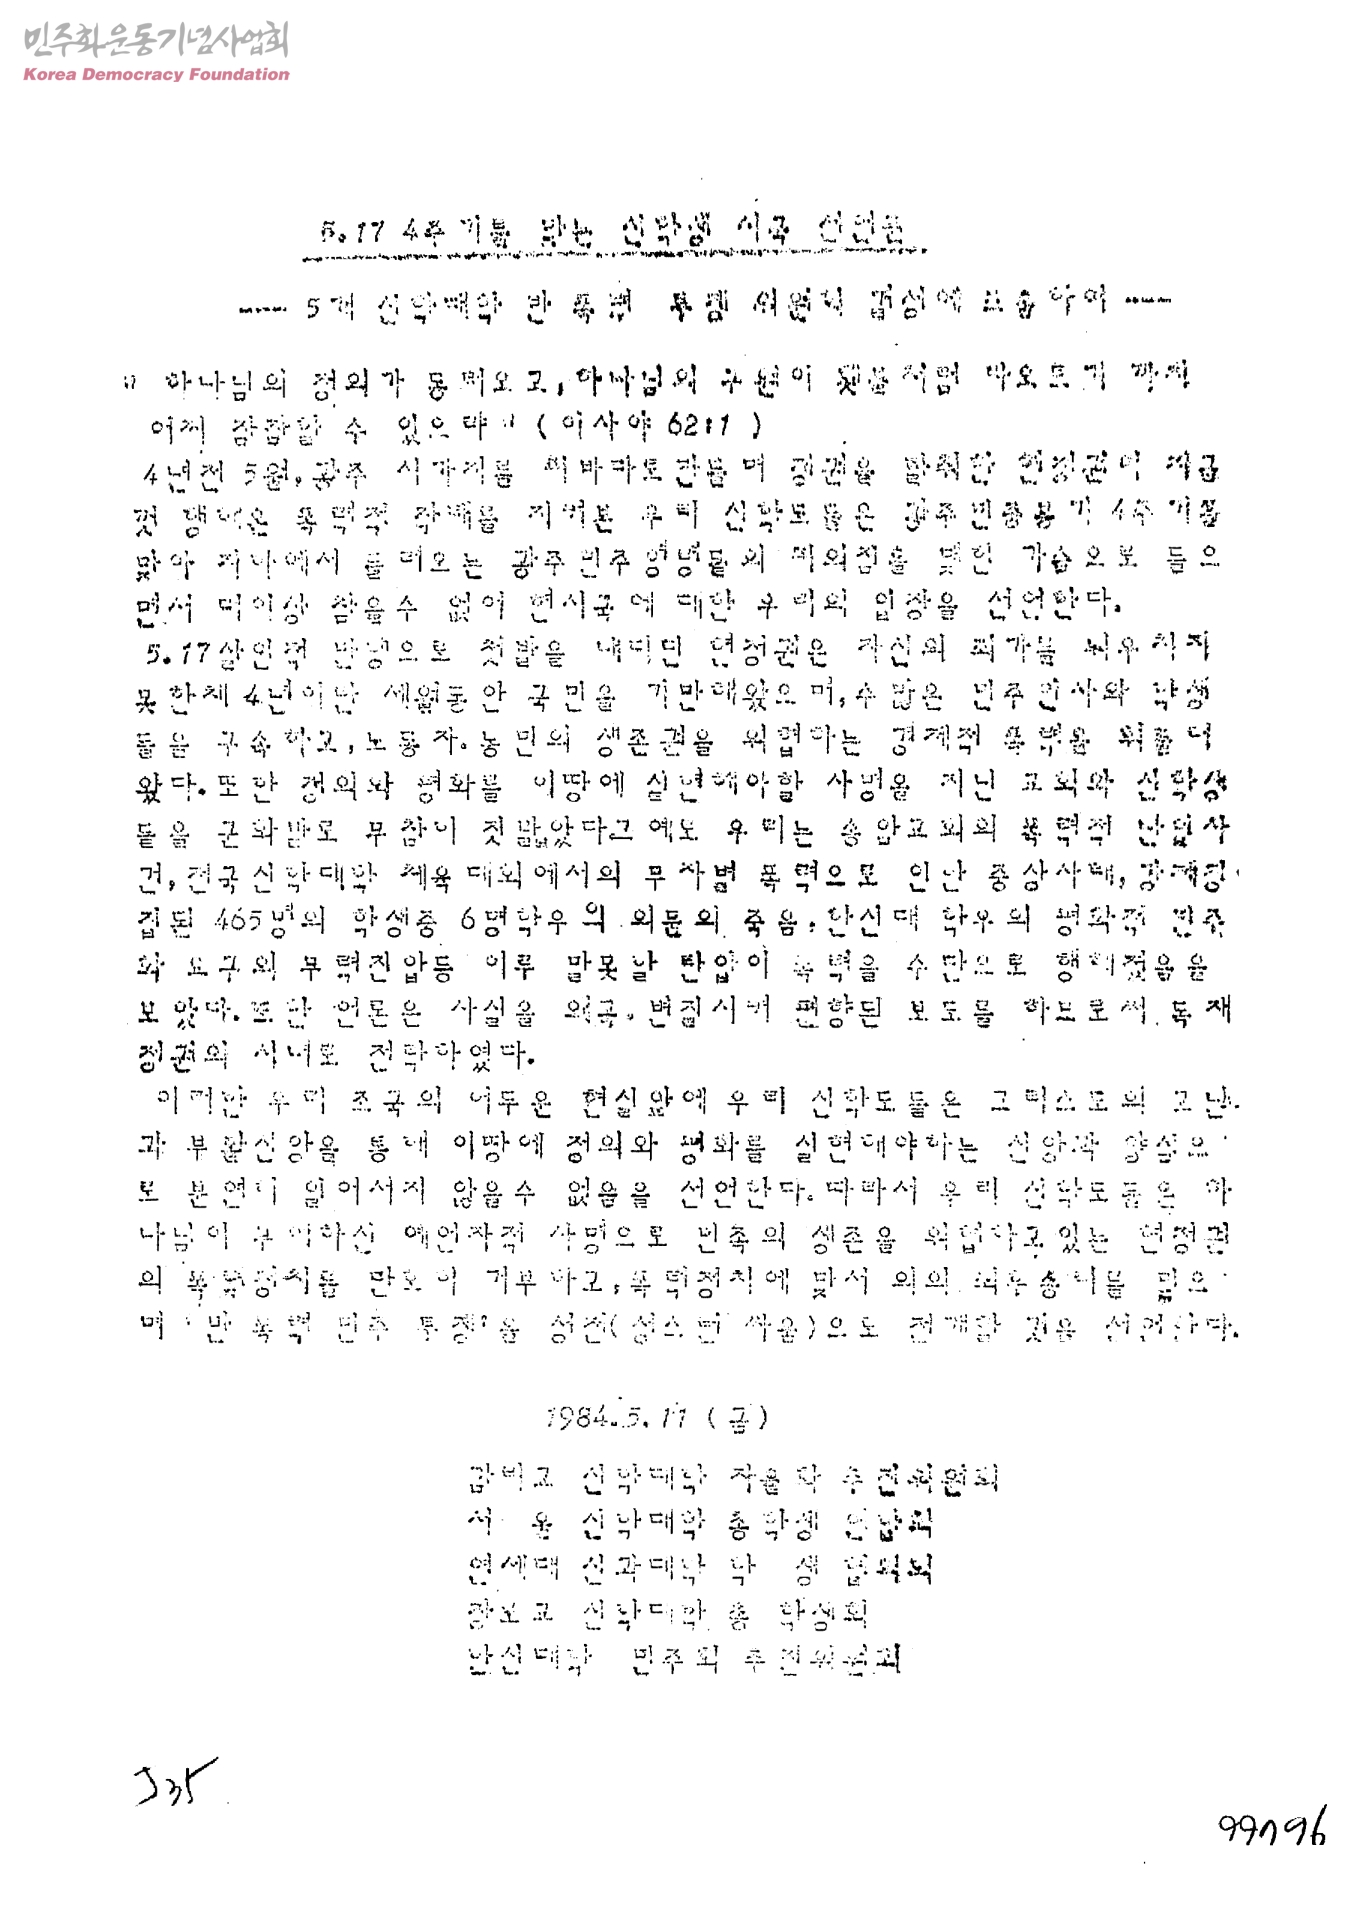 민주화운동기념사업회
Korea Democracy Foundation
5.17 4주기를 맞는 신학생 시국 선언문
---- 5개 신학대학 반 폭력 투쟁 위원회 결성에 즈음하여 ----
" 하나님의 정의가 동터오고, 하나님의 구원이 횃불처럼 타오르기 까지
어찌 잠잠할 수 있으랴 " ( 이사야 62:1 )
4년전 5월, 광주 시가지를 피바다로 만들며 정권을 탈취한 현정권이 지금
것 행해온 폭력적 작태를 지켜본 우리 신학도들은 광주민중봉기 4주기를
맞아 지하에서 들려오는 광주민주영령들의 피의침을 맺힌 가슴으로 들으
면서 더이상 참을수 없어 현시국에 대한 우리의 입장을 선언한다.
5.17살인적 만행으로 첫발을 내디딘 현정권은 자신의 죄가를 뉘우치지
못한체 4년이란 세월동안 국민을 기만해왔으며, 수많은 민주인사와 학생
들을 구속하고, 노동자.농민의 생존권을 위협하는 경제적 폭력을 휘둘러
왔다. 또한 정의와 평화를 이땅에 실현해야할 사명을 지닌 교회와 신학생
들을 군화발로 무참히 짓밟았다 그 예로 우리는 송암교회의 폭력적 난입사
건, 전국신학대학 체육대회에서의 무차별 폭력으로 인한 중상사태, 강제징
집된 465명의 학생중 6명학우의 의문의 죽음, 한신대 학우의 평화적 민주
화 요구의 무력진압등 이루 말못할 탄압이 폭력을 수단으로 행해졌음을
보았다. 또한 언론은 사실을 왜곡, 변질시켜 편향된 보도를 하므로써 독재
정권의 시녀로 전락하였다.
이러한 우리 조국의 어두운 현실앞에 우리 신학도들은 그리스도의 고난
과 부활신앙을 통해 이땅에 정의와 평화를 실현해야하는 신앙과 양심으
로 분연히 일어서지 않을수 없음을 선언한다. 따라서 우리 신학도들은 하
나님이 부여하신 예언자적 사명으로 민족의 생존을 위협하고있는 현정권
의 폭력정치를 단호히 거부하고, 폭력정치에 맞서 의의 최후승리를 믿으
며 '반 폭력 민주 투쟁'을 성전(성스런 싸움)으로 전개할 것을 선언한다.
1984.5.11 (금)
감리교 신학대학 자율화 추진위원회
서 울 신학대학 총학생 연합회
연세대 신과대학 학 생 협의회
장로교 신학대학 총 학생회
한신대학 민주화 추진위원회
J35
99796